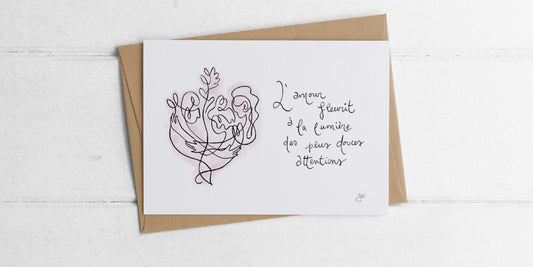 L'amour
fleurit
à la lumière
des plus douces
attentions